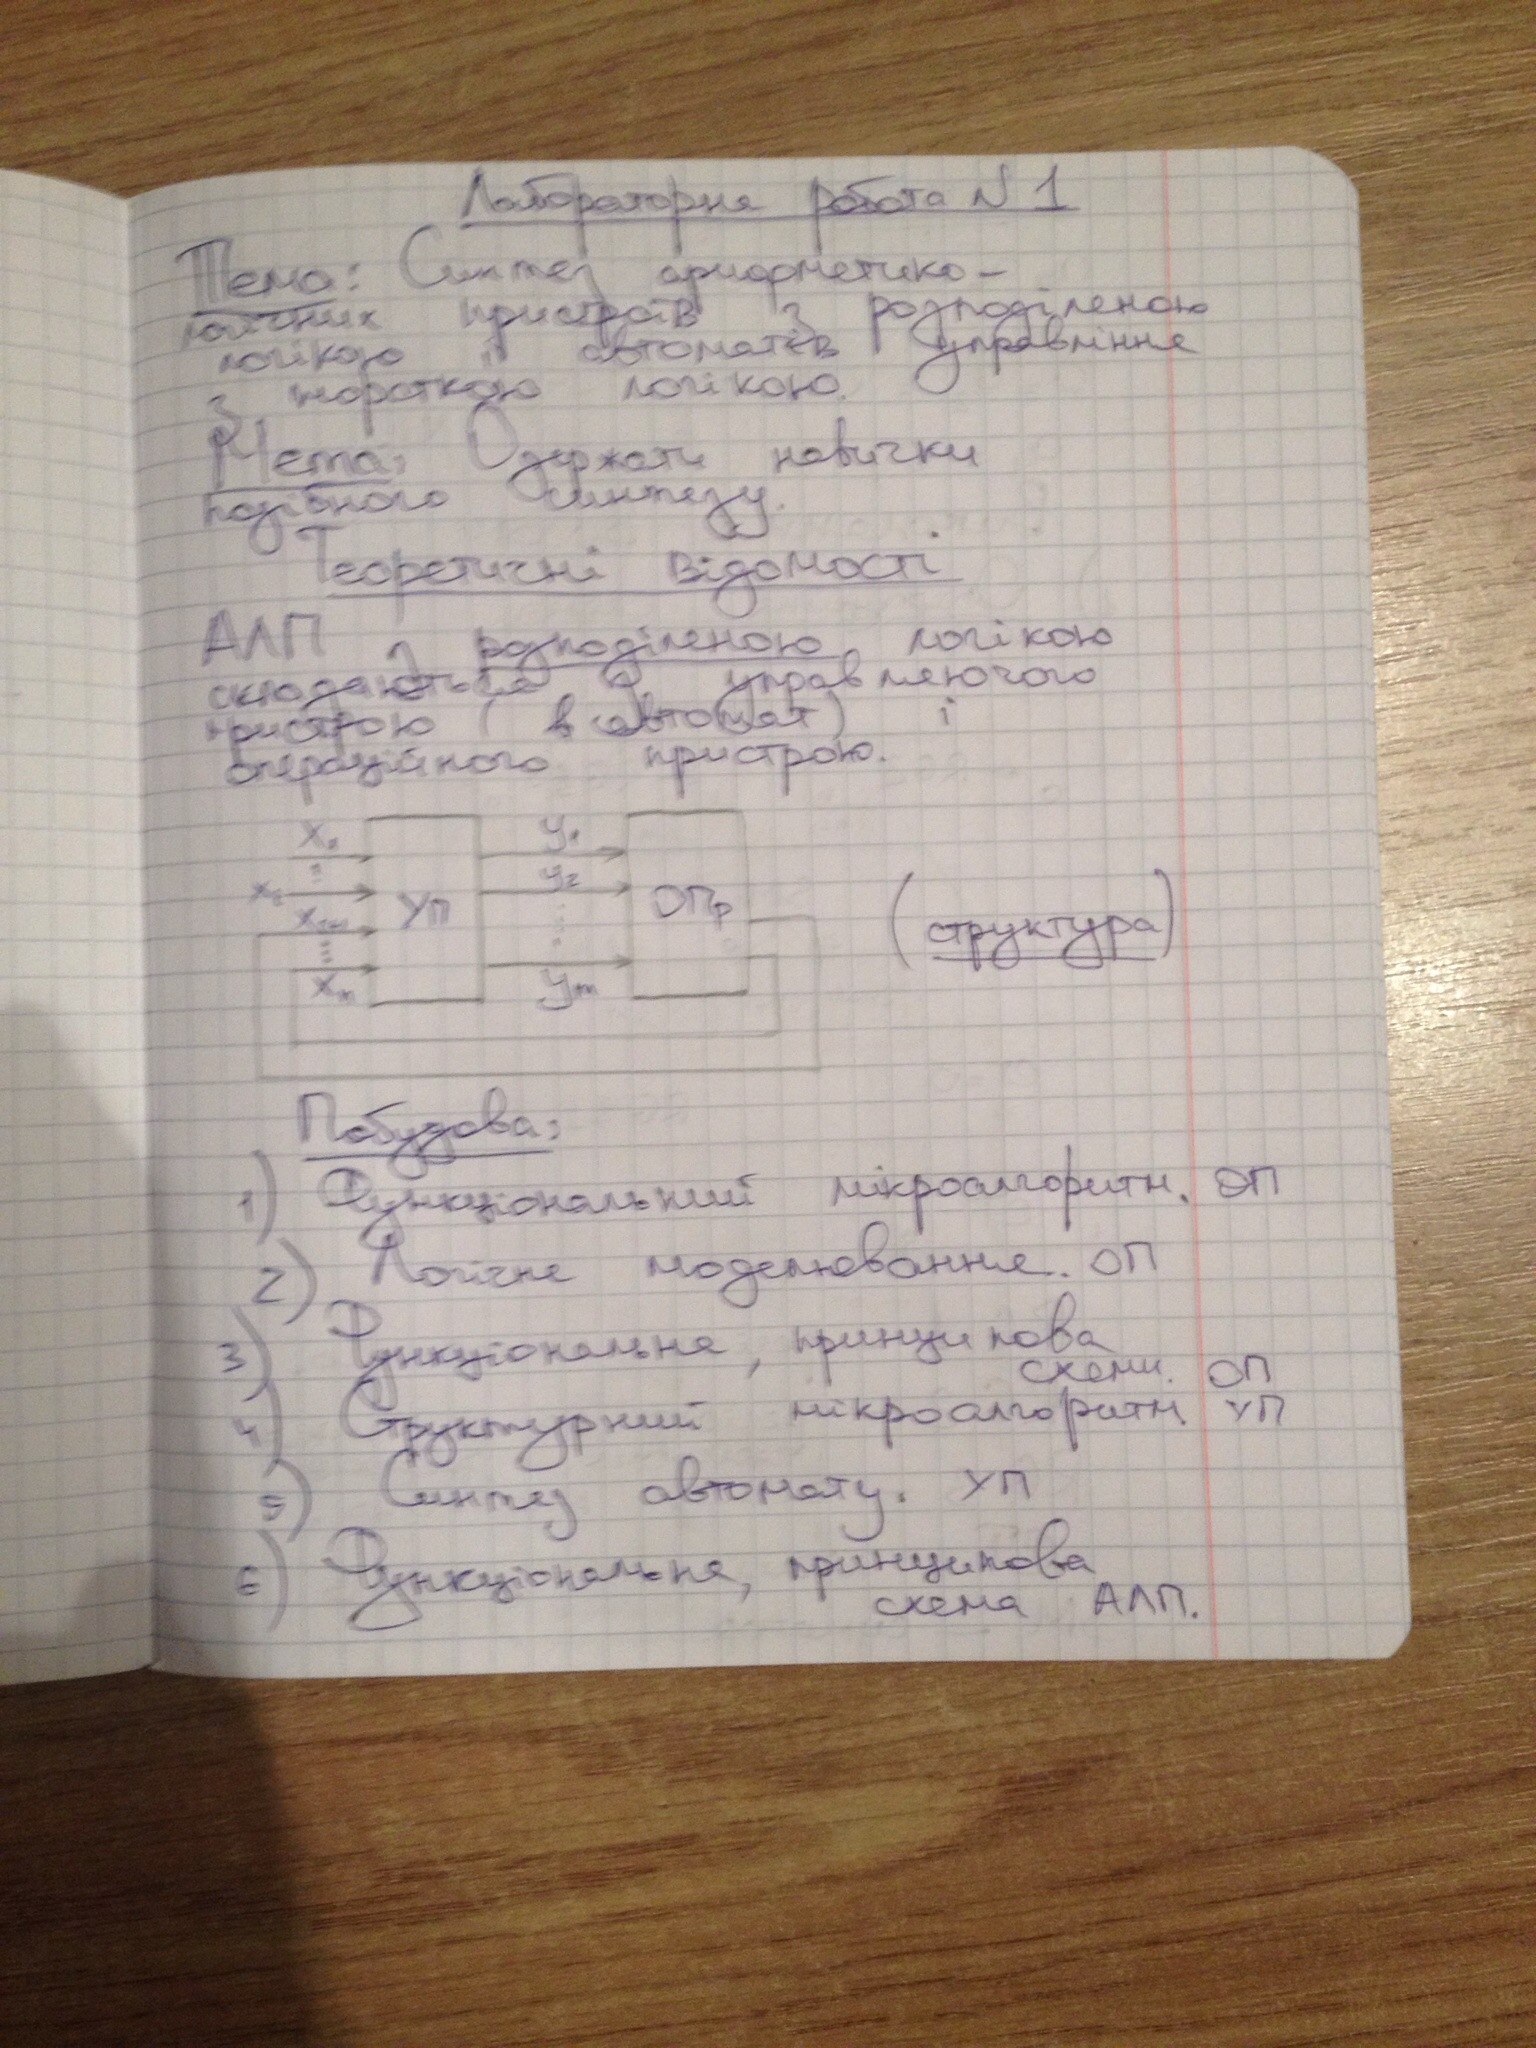 Лабораторна робота N 1
Тема: Синтез арифметико-
логічних пристроїв з розподіленою
логікою і автоматів управління
з жорсткою логікою.
Мета: Одержати навички
подібного синтезу.
Теоретичні відомості
АЛП з розподіленою логікою
складаються з управляючого
пристрою ( автомат) і
операційного пристрою.
X₁ y₁
y₂
УП ОПр
(структура)
Xm ym
Побудова:
1) Функціональний мікроалгоритм. ОП
2) Логічне моделювання. ОП
3) Функціональна, принципова
схеми. ОП
4) Структурний мікроалгоритм. УП
5) Синтез автомату. УП
6) Функціональна, принципова
схема АЛП.